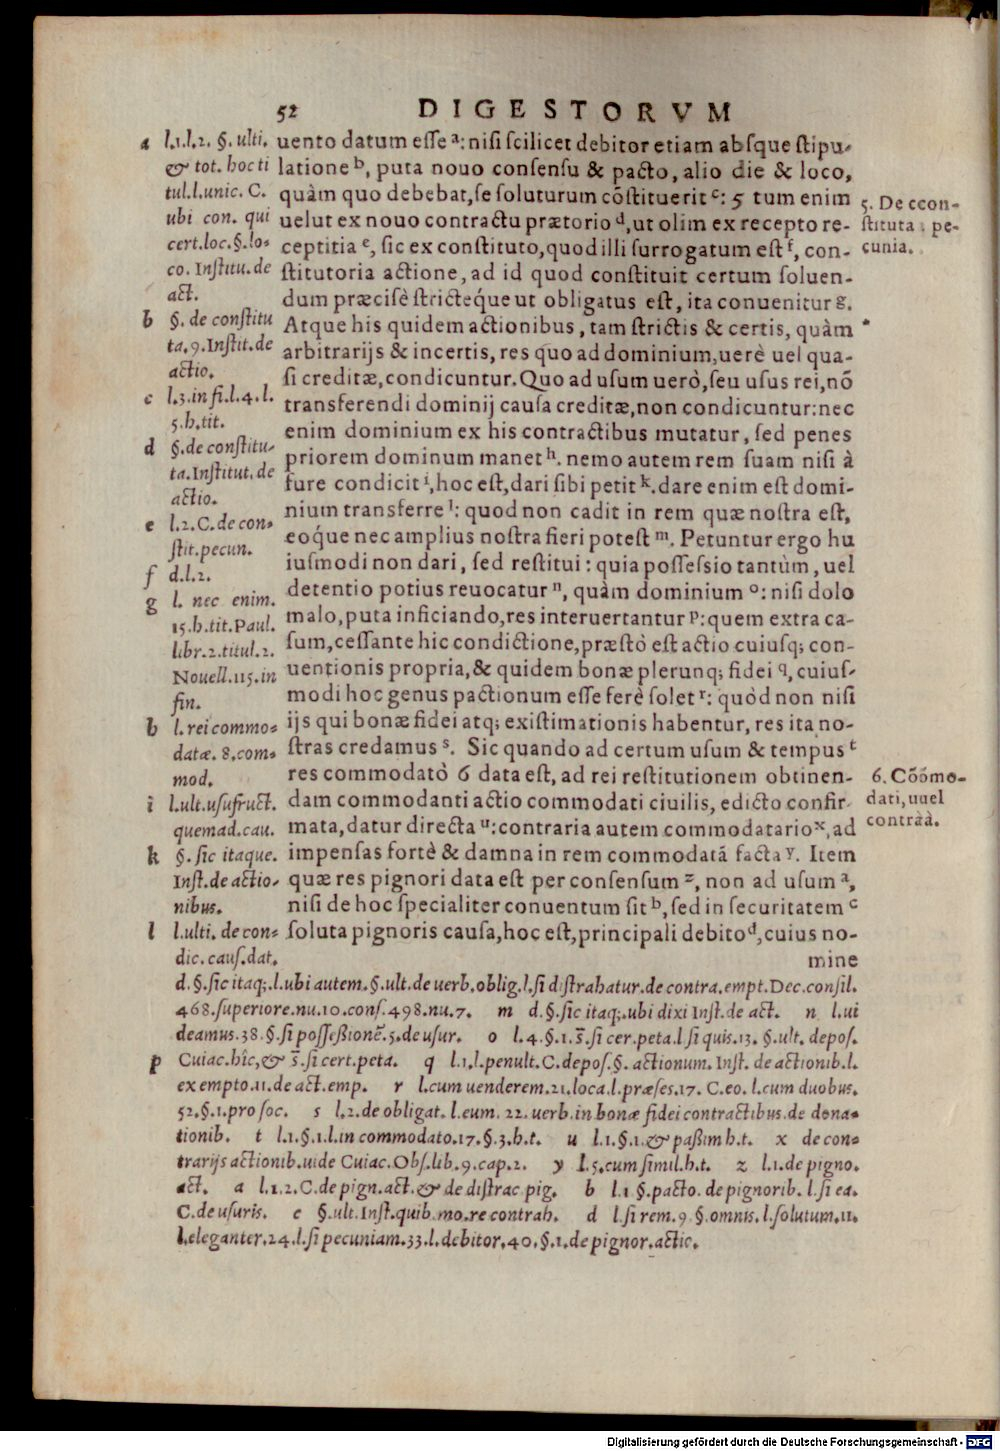 52 DIGESTORVM
uento datum esse a: nisi scilicet debitor etiam absque stipu-
latione b, puta nouo consensu & pacto, alio die & loco,
quàm quo debebat, se soluturum cõstituerit c: 5 tum enim
uelut ex nouo contractu prætorio d, ut olim ex recepto re-
ceptitia e, sic ex constituto, quod illi surrogatum est f, con-
stitutoria actione, ad id quod constituit certum soluen-
dum præcisè stricteq́ue ut obligatus est, ita conuenitur g.
Atque his quidem actionibus, tam strictis & certis, quàm *
arbitrarijs & incertis, res quo ad dominium, uerè uel qua-
si creditæ, condicuntur. Quo ad usum uerò, seu usus rei, nõ
transferendi dominij causa creditæ, non condicuntur: nec
enim dominium ex his contractibus mutatur, sed penes
priorem dominum manet h. nemo autem rem suam nisi à
fure condicit i, hoc est, dari sibi petit k. dare enim est domi-
nium transferre l: quod non cadit in rem quæ nostra est,
eoq́ue nec amplius nostra fieri potest m. Petuntur ergo hu
iusmodi non dari, sed restitui: quia possessio tantùm, uel
detentio potius reuocatur n, quàm dominium o: nisi dolo
malo, puta inficiando, res interuertantur p: quem extra ca-
sum, cessante hic condictione, præstò est actio cuiusq; con-
uentionis propria, & quidem bonæ plerunq; fidei q, cuius-
modi hoc genus pactionum esse ferè solet r: quòd non nisi
ijs qui bonæ fidei atq; existimationis habentur, res ita no-
stras credamus s. Sic quando ad certum usum & tempus t
res commodatò 6 data est, ad rei restitutionem obtinen-
dam commodanti actio commodati ciuilis, edicto confir-
mata, datur directa u: contraria autem commodatario x, ad
impensas fortè & damna in rem commodatã facta y. Item
quæ res pignori data est per consensum z, non ad usum a,
nisi de hoc specialiter conuentum sit b, sed in securitatem c
soluta pignoris causa, hoc est, principali debito d, cuius no-
mine
a l.1.l.2. §. ulti.
& tot. hoc ti
tul.l.unic. C.
ubi con. qui
cert.loc.§.lo-
co. Institu. de
act.
b §. de constitu
ta.9. Instit. de
actio.
c l.3.in fi.l.4.l.
5.h.tit.
d §.de constitu-
ta. Institut. de
actio.
e l.2.C.de con-
stit.pecun.
f d.l.2.
g l. nec enim.
15.h.tit.Paul.
libr.2.titul.2.
Nouell.115.in
fin.
h l.rei commo-
datæ. 8.com-
mod.
i l.ult.usufruct.
quemad.cau.
k §. sic itaque.
Inst.de actio-
nibus.
l l.ulti. de con-
dic. caus.dat.
5. De ccon-
stituta pe-
cunia.
6. Cõõmo-
dati, uuel
contràà.
d.§.sic itaq;.l.ubi autem.§.ult.de uerb.oblig.l.si distrahatur.de contra.empt.Dec.consil.
468.superiore.nu.10.cons.498.nu.7. m d.§.sic itaq;.ubi dixi Inst.de act. n l.ui
deamus.38.§.si possessionẽ.5.de usur. o l.4.§.1.s̃.si cer.peta.l.si quis.13. §.ult. depos.
p Cuiac.hîc,& s̃.si cert.peta. q l.1.l.penult.C.depos.§. actionum. Inst. de actionib.l.
ex empto.11.de act.emp. r l.cum uenderem.21.loca.l.præses.17. C.eo. l.cum duobus.
52.§.1.pro soc. s l.2.de obligat.l.eum. 22. uerb.in bonæ fidei contractibus.de dona-
tionib. t l.1.§.1.l.in commodato.17.§.3.h.t. u l.1.§.1.& passim h.t. x de con-
trarijs actionib.uide Cuiac.Obs.lib.9.cap.2. y l.5.cum simil.h.t. z l.1.de pigno.
act. a l.1.2.C.de pign.act.& de distrac.pig. b l.1 §.pacto. de pignorib. l.si ea.
C.de usuris. c §.ult.Inst.quib.mo.re contrah. d l.si rem.9 §.omnis.l.solutum.11.
l.eleganter.24.l.si pecuniam.33.l.debitor.40.§.1.de pignor.actic.
Digitalisierung gefördert durch die Deutsche Forschungsgemeinschaft - DFG